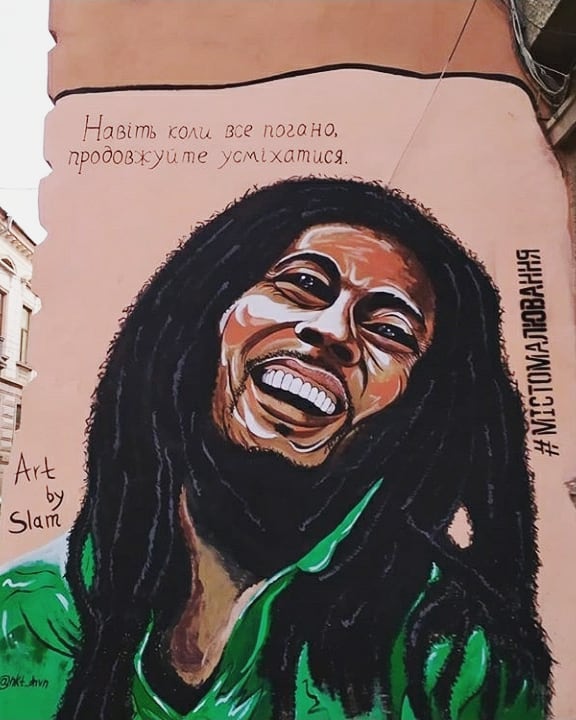 Навіть коли все погано,
продовжуйте усміхатися.
#МІСТОМАЛЮВАННЯ
Art
by
Slam